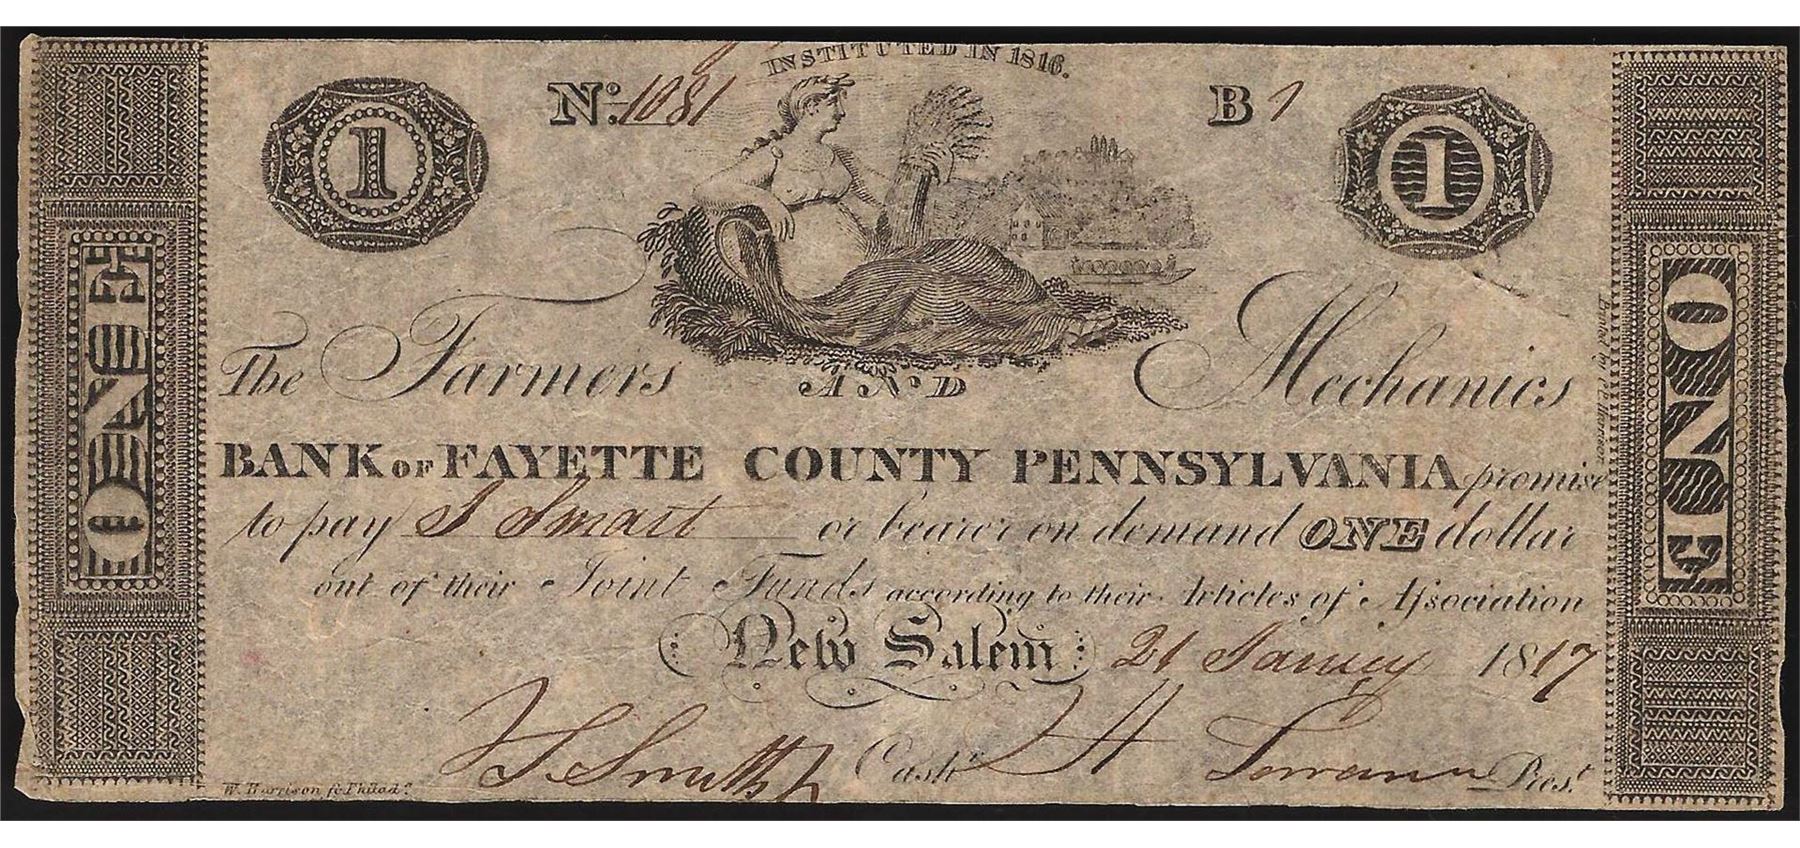 INSTITUTED IN 1816.
1 No. 1081 B 1 1
The Farmers AND Mechanics
BANK OF FAYETTE COUNTY PENNSYLVANIA promise
to pay S Smart or bearer on demand ONE dollar
out of their Joint Funds according to their Articles of Aſsociation
New Salem 21 1817
Smith Cashr. Prest.
W. Harrison fc Philada.
ONE
ONE
Printed by